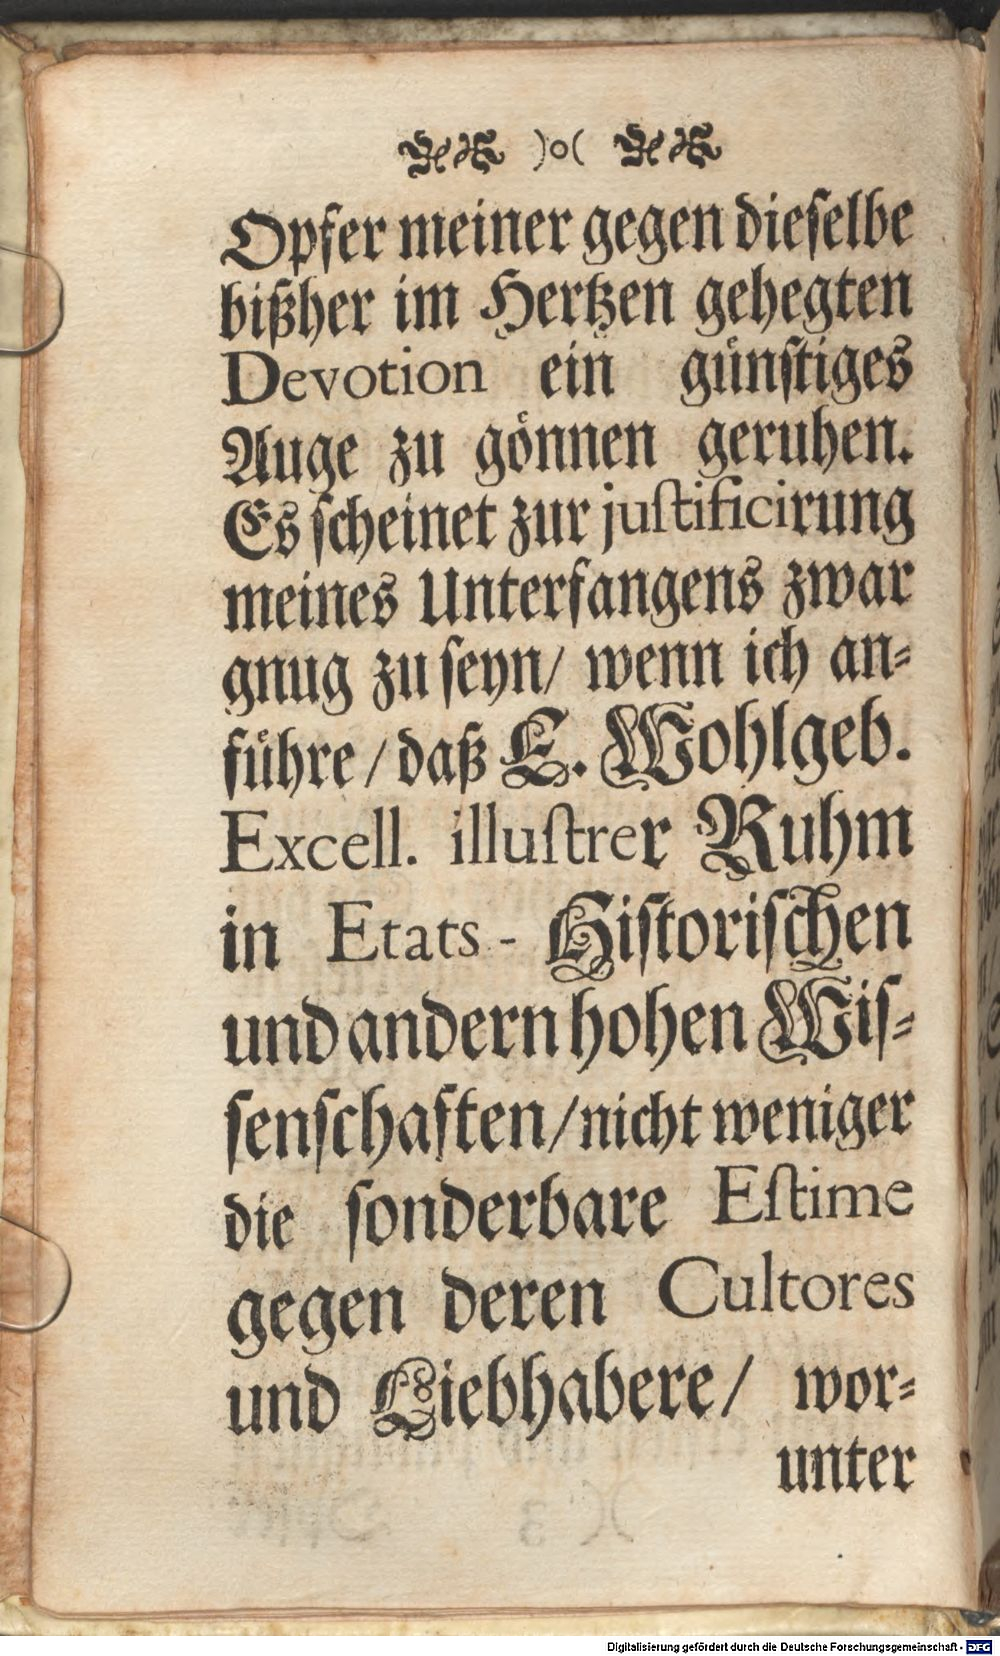 )o(
Opfer meiner gegen dieſelbe
bißher im Hertzen gehegten
Devotion ein günſtiges
Auge zu gönnen geruhen.
Es ſcheinet zur juſtificirung
meines Unterfangens zwar
gnug zu ſeyn/ wenn ich an⸗
führe / daß E. Wohlgeb.
Excell. illuſtrer Ruhm
in Etats - Hiſtoriſchen
und andern hohen Wiſ⸗
ſenſchafften/ nicht weniger
die ſonderbare Eſtime
gegen deren Cultores
und Liebhabere/ wor⸗
unter
Digitalisierung gefördert durch die Deutsche Forschungsgemeinschaft - DFG